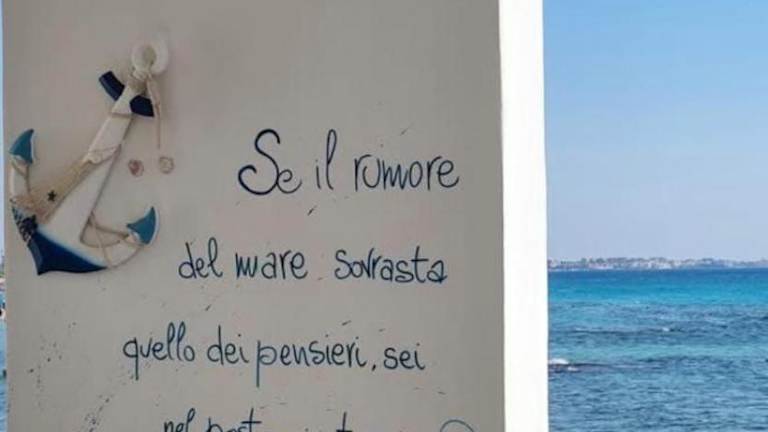 Se il rumore
del mare sovrasta
quello dei pensieri, sei
nel